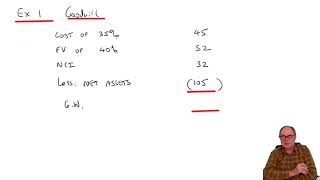 Ex 1 Goodwill
COST OF 35% 45
FV OF 40% 52
NCI 32
Less: NET ASSETS (105)
G.W.